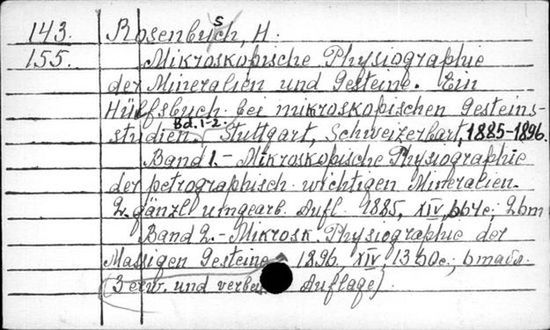 143. Rosenbusch, H.
155. Mikroskopische Physiographie
der Mineralien und Gesteine. Ein
Hülfsbuch bei mikroskopischen Gesteins-
studien. Bd. 1-2. Stuttgart, Schweizerbart, 1885-1896.
Band 1.- Mikroskopische Physiographie
der petrographisch wichtigen Mineralien.
2. gänzl umgearb. Aufl. 1885, XIV,
Band 2.- Mikrosk. Physiographie der
Massigen Gesteine. 1896. XIV,
(3 erw. und verbes Auflage)